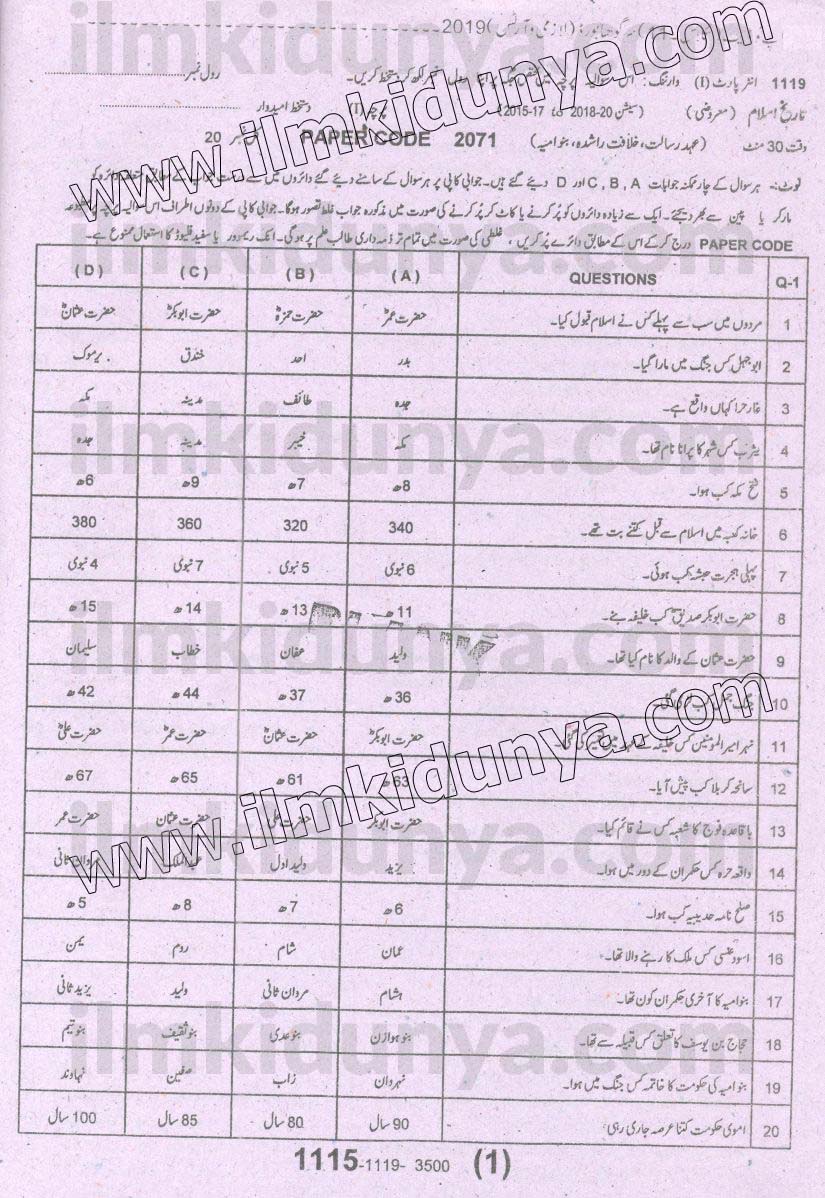 2019
1119 انٹر پارٹ (I) وارننگ: اس سوالیہ پرچہ رول نمبر لکھ کر دستخط کریں۔ رول نمبر
تاریخ اسلام (معروضی) (سیشن 2015-17 to 2018-20) پرچہ (I) دستخط امیدوار
وقت 30 منٹ (عہد رسالت، خلافت راشدہ، بنو امیہ) PAPER CODE 2071 نمبر 20
نوٹ:۔ ہر سوال کے چار ممکنہ جوابات C , B , A اور D دیئے گئے ہیں۔ جوابی کاپی پر ہر سوال کے سامنے دیئے گئے دائروں میں سے
مارکر یا پین سے بھر دیجئے۔ ایک سے زیادہ دائروں کو پُر کرنے یا کاٹ کر پُر کرنے کی صورت میں مذکورہ جواب غلط تصور ہوگا۔ جوابی کاپی کے دونوں اطراف اس سوالیہ
PAPER CODE درج کر کے اس کے مطابق دائرے پُر کریں، غلطی کی صورت میں تمام تر ذمہ داری طالب علم پر ہوگی۔ انک ریموور یا سفید فلیوڈ کا استعمال ممنوع ہے۔
Q-1 QUESTIONS (A) (B) (C) (D)
1 مردوں میں سب سے پہلے کس نے اسلام قبول کیا۔ حضرت عمرؓ حضرت حمزہؓ حضرت ابوبکرؓ حضرت عثمانؓ
2 ابو جہل کس جنگ میں مارا گیا۔ بدر احد خندق یرموک
3 غار حرا کہاں واقع ہے۔ جدہ طائف مدینہ مکہ
4 یثرب کس شہر کا پرانا نام تھا۔ مکہ خیبر مدینہ جدہ
5 فتح مکہ کب ہوا۔ 8ھ 7ھ 9ھ 6ھ
6 خانہ کعبہ میں اسلام سے قبل کتنے بت تھے۔ 340 320 360 380
7 پہلی ہجرت حبشہ کب ہوئی۔ 6 نبوی 5 نبوی 7 نبوی 4 نبوی
8 حضرت ابوبکر صدیقؓ کب خلیفہ بنے۔ 11ھ 13ھ 14ھ 15ھ
9 حضرت عثمان کے والد کا نام کیا تھا۔ ولید عفان خطاب سلیمان
10 جنگ جمل 36ھ 37ھ 44ھ 42ھ
11 نہر امیر المومنین کس خلیفہ کے حضرت ابوبکرؓ حضرت عثمانؓ حضرت عمرؓ حضرت علیؓ
12 سانحہ کربلا کب پیش آیا۔ 63ھ 61ھ 65ھ 67ھ
13 باقاعدہ فوج کا شعبہ کس نے قائم کیا۔ حضرت ابوبکر حضرت علی حضرت عثمان حضرت عمر
14 واقعہ حرہ کس حکمران کے دور میں ہوا۔ یزید ولید اول عبدالملک مروان ثانی
15 صلح نامہ حدیبیہ کب ہوا۔ 6ھ 7ھ 8ھ 5ھ
16 اسود عنسی کس ملک کا رہنے والا تھا۔ عمان شام روم یمن
17 بنو امیہ کا آخری حکمران کون تھا۔ ہشام مروان ثانی ولید یزید ثانی
18 حجاج بن یوسف کا تعلق کس قبیلہ سے تھا۔ بنو ہوازن بنو عدی بنو ثقیف بنو تیم
19 بنو امیہ کی حکومت کا خاتمہ کس جنگ میں ہوا۔ نہروان زاب صفین نہاوند
20 اموی حکومت کتنا عرصہ جاری رہی۔ 90 سال 80 سال 85 سال 100 سال
1115-1119- 3500 (1)
www.ilmkidunya.com
www.ilmkidunya.com
ilmkidunya.com
ilmkidunya.com
ilmkidunya.com
ilmkidunya.com
ilmkidunya.com